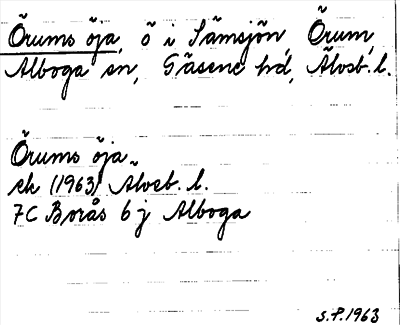 Örums öja, ö i Sämsjön, Örum,
Alboga sn, Gäsene hd, Älvsb. l.
Örums öja
ek (1963) Älvsb. l.
7C Borås 6j Alboga
S.P. 1963